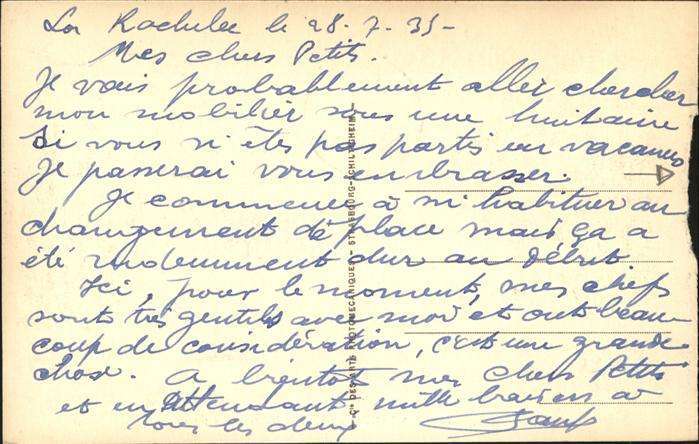 La Rochelle le 28-7-35-
Mes chers Petits.
Je vais probablement aller chercher
mon mobilier sous une huitaine
Si vous n'êtes pas partis en vacances
Je passerai vous embrasser.
Je commence à m'habituer au
changement de place mais ça a
été rudement dur au début
Ici, pour le moment, mes chefs
sont très gentils avec moi et ont beau-
coup de considération, c'est une grande
chose. A bientôt mes chers Petits
et en attendant mille baisers à
tous les deux
Cie DES ARTS PHOTOMECANIQUES - STRASBOURG-SCHILTIGHEIM